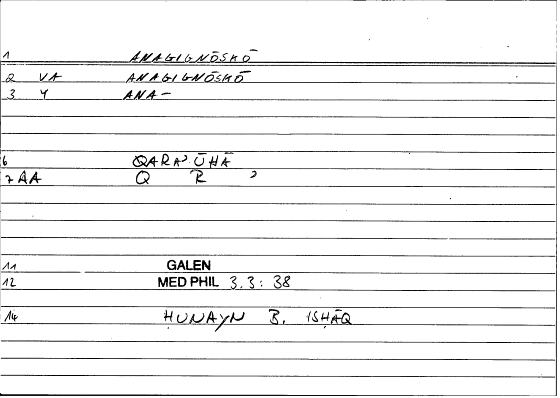 1 ANAGIGNŌSKŌ
2 VA ANAGIGNŌSKŌ
3 Y ANA-
6 QARAʾŪHĀ
7 AA Q R ʾ
11 GALEN
12 MED PHIL 3.3: 38
14 ḤUNAYN B. ISḤĀQ